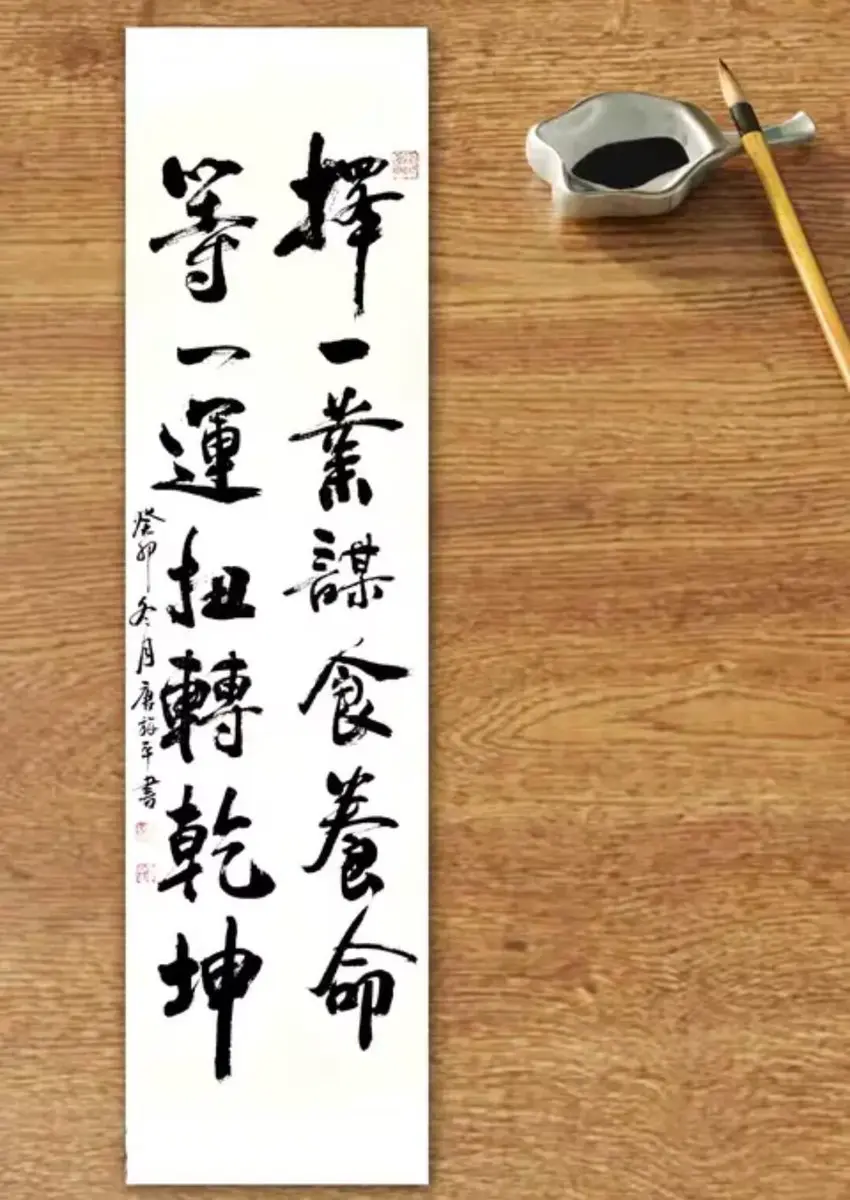 擇一業謀食養命
等一運扭轉乾坤
癸卯冬月唐
平書